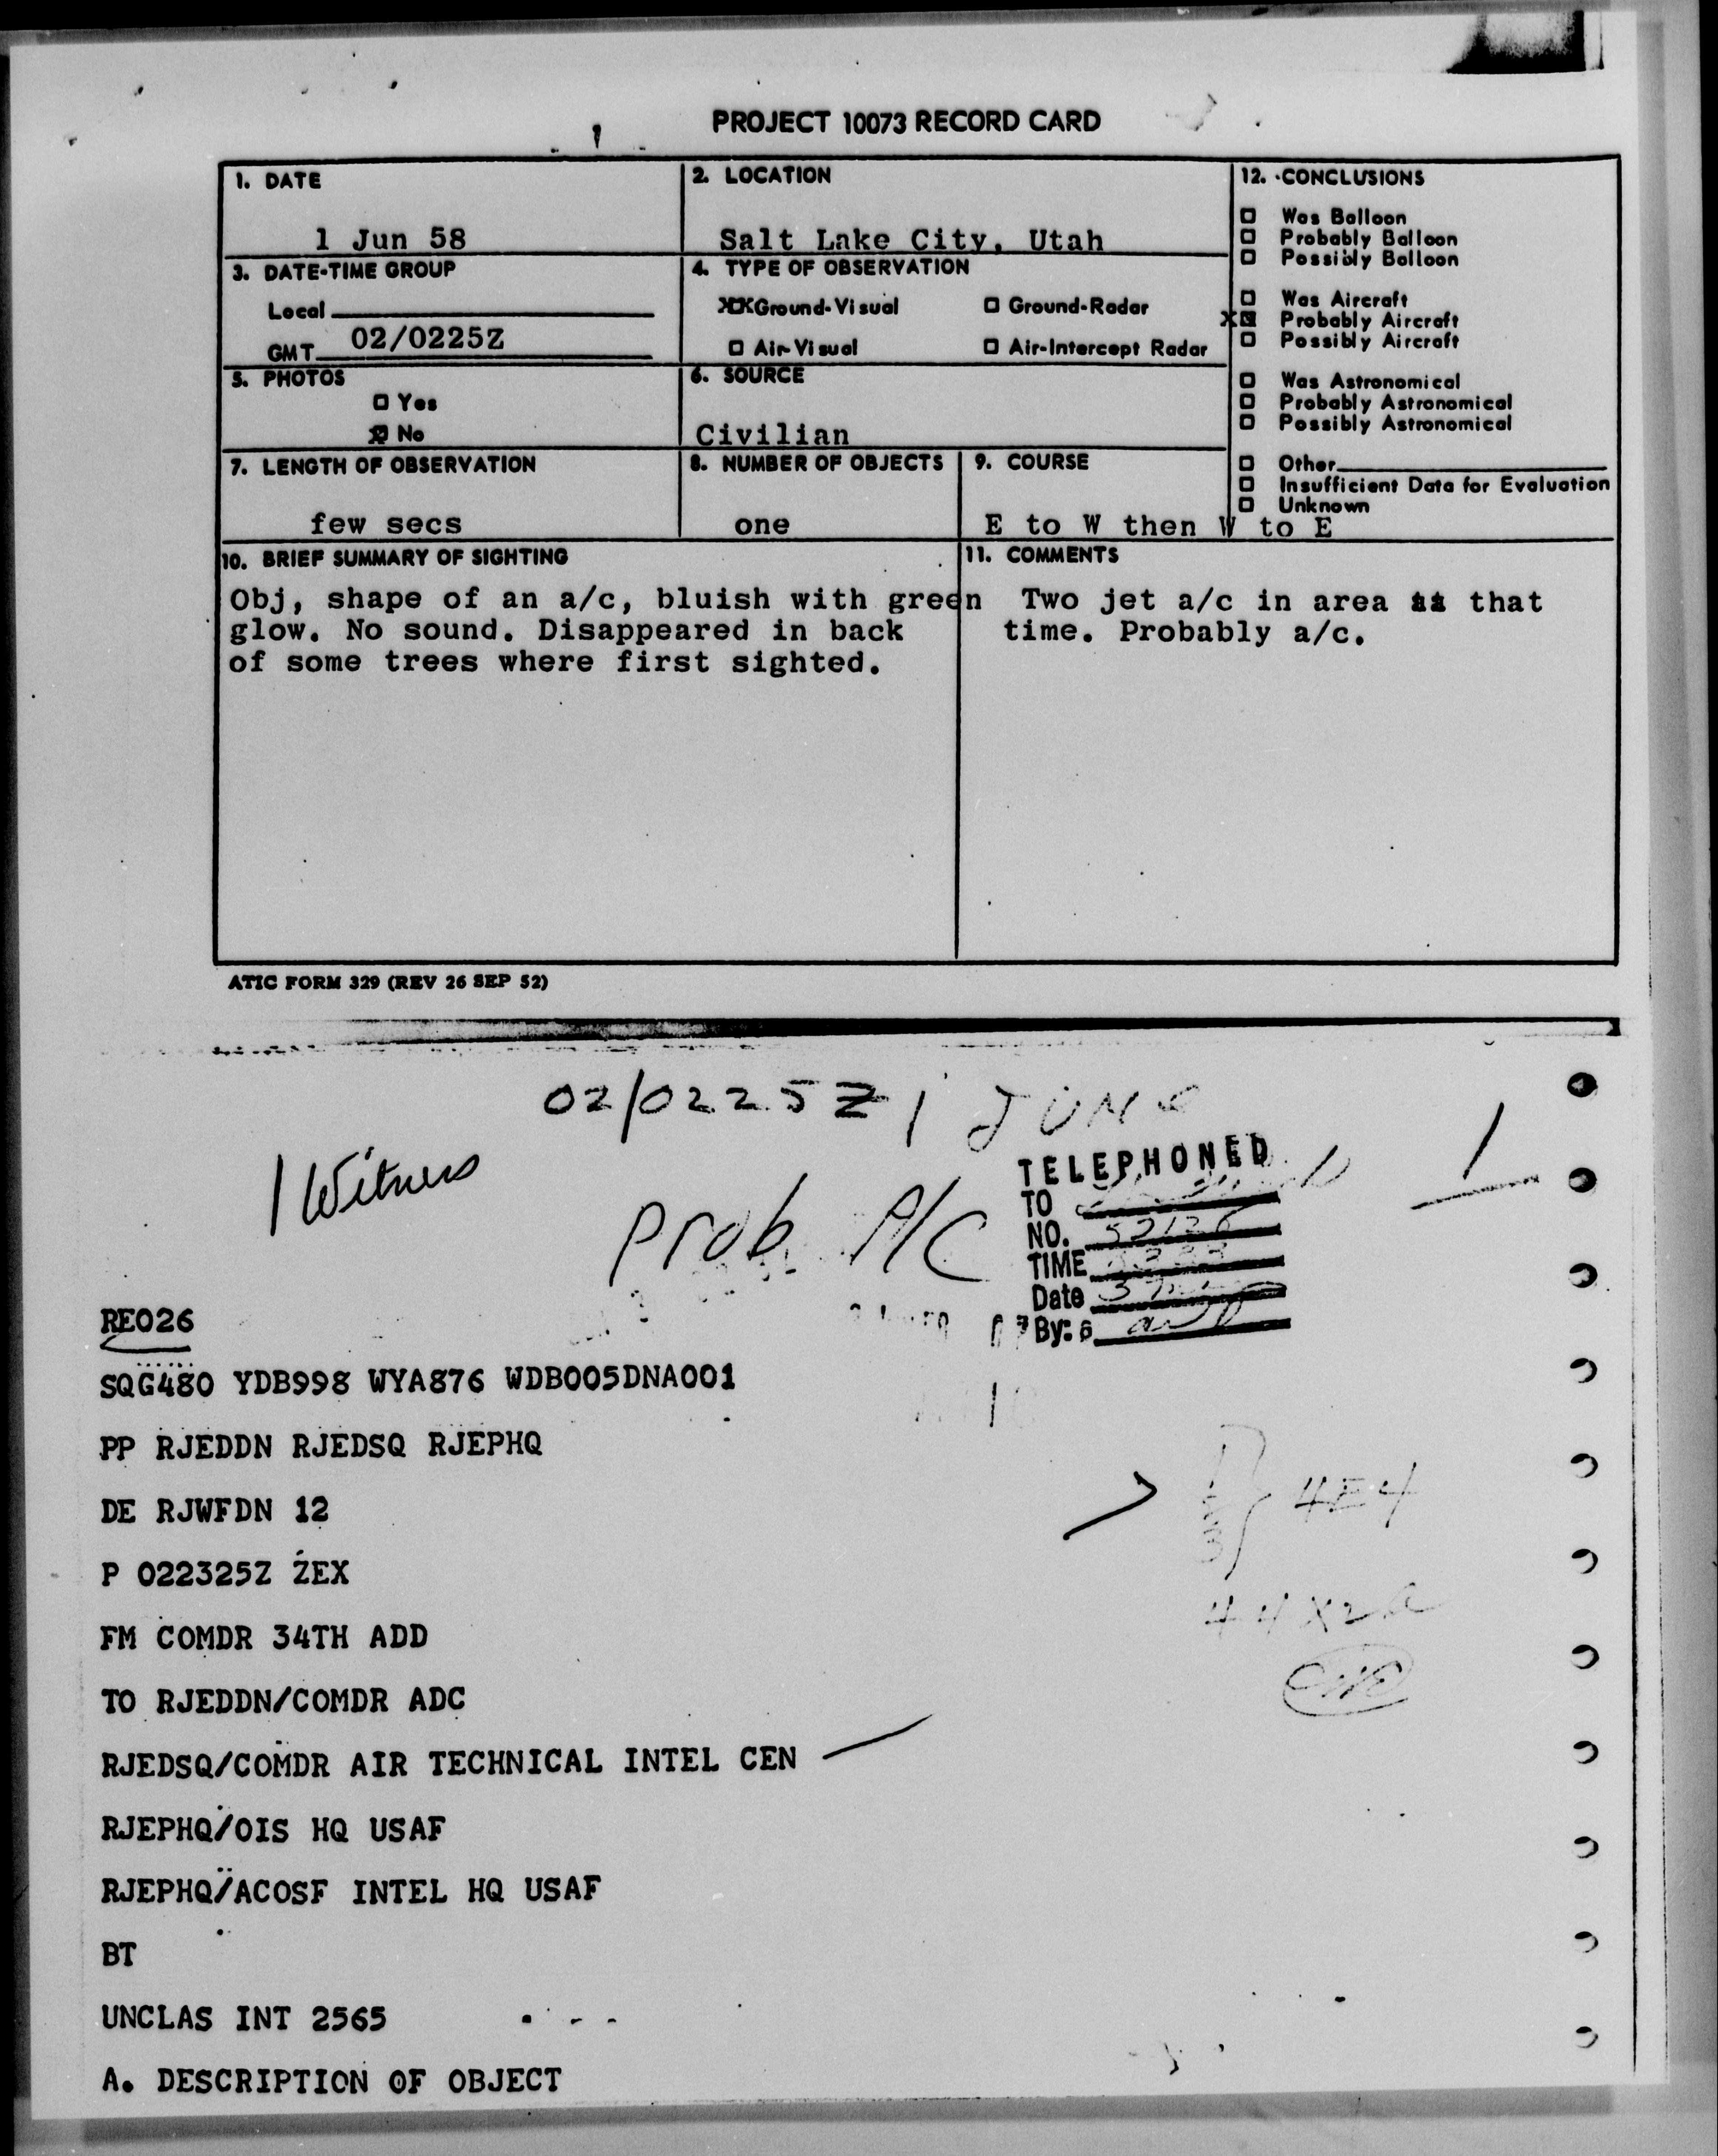 PROJECT 10073 RECORD CARD
1. DATE
1 Jun 58
2. LOCATION
Salt Lake City, Utah
12. CONCLUSIONS
Was Balloon
Probably Balloon
Possibly Balloon
Was Aircraft
XX Probably Aircraft
Possibly Aircraft
Was Astronomical
Probably Astronomical
Possibly Astronomical
Other
Insufficient Data for Evaluation
Unknown
3. DATE-TIME GROUP
Local
GMT 02/0225Z
4. TYPE OF OBSERVATION
XX Ground-Visual
Ground-Radar
Air-Visual
Air-Intercept Radar
5. PHOTOS
Yes
X No
6. SOURCE
Civilian
7. LENGTH OF OBSERVATION
few secs
8. NUMBER OF OBJECTS
one
9. COURSE
E to W then W to E
10. BRIEF SUMMARY OF SIGHTING
Obj, shape of an a/c, bluish with green
glow. No sound. Disappeared in back
of some trees where first sighted.
11. COMMENTS
Two jet a/c in area that
time. Probably a/c.
ATIC FORM 329 (REV 26 SEP 52)
02/0225Z 1 JUNE
1 Witness
Prob A/C
1
TELEPHONED
TO
NO. 52126
TIME
Date 3
By:
RE026
SQG480 YDB998 WYA876 WDB005DNA001
PP RJEDDN RJEDSQ RJEPHQ
DE RJWFDN 12
4E4
P 022325Z ZEX
44X2a
FM COMDR 34TH ADD
TO RJEDDN/COMDR ADC
RJEDSQ/COMDR AIR TECHNICAL INTEL CEN
RJEPHQ/OIS HQ USAF
RJEPHQ/ACOSF INTEL HQ USAF
BT
UNCLAS INT 2565
A. DESCRIPTION OF OBJECT